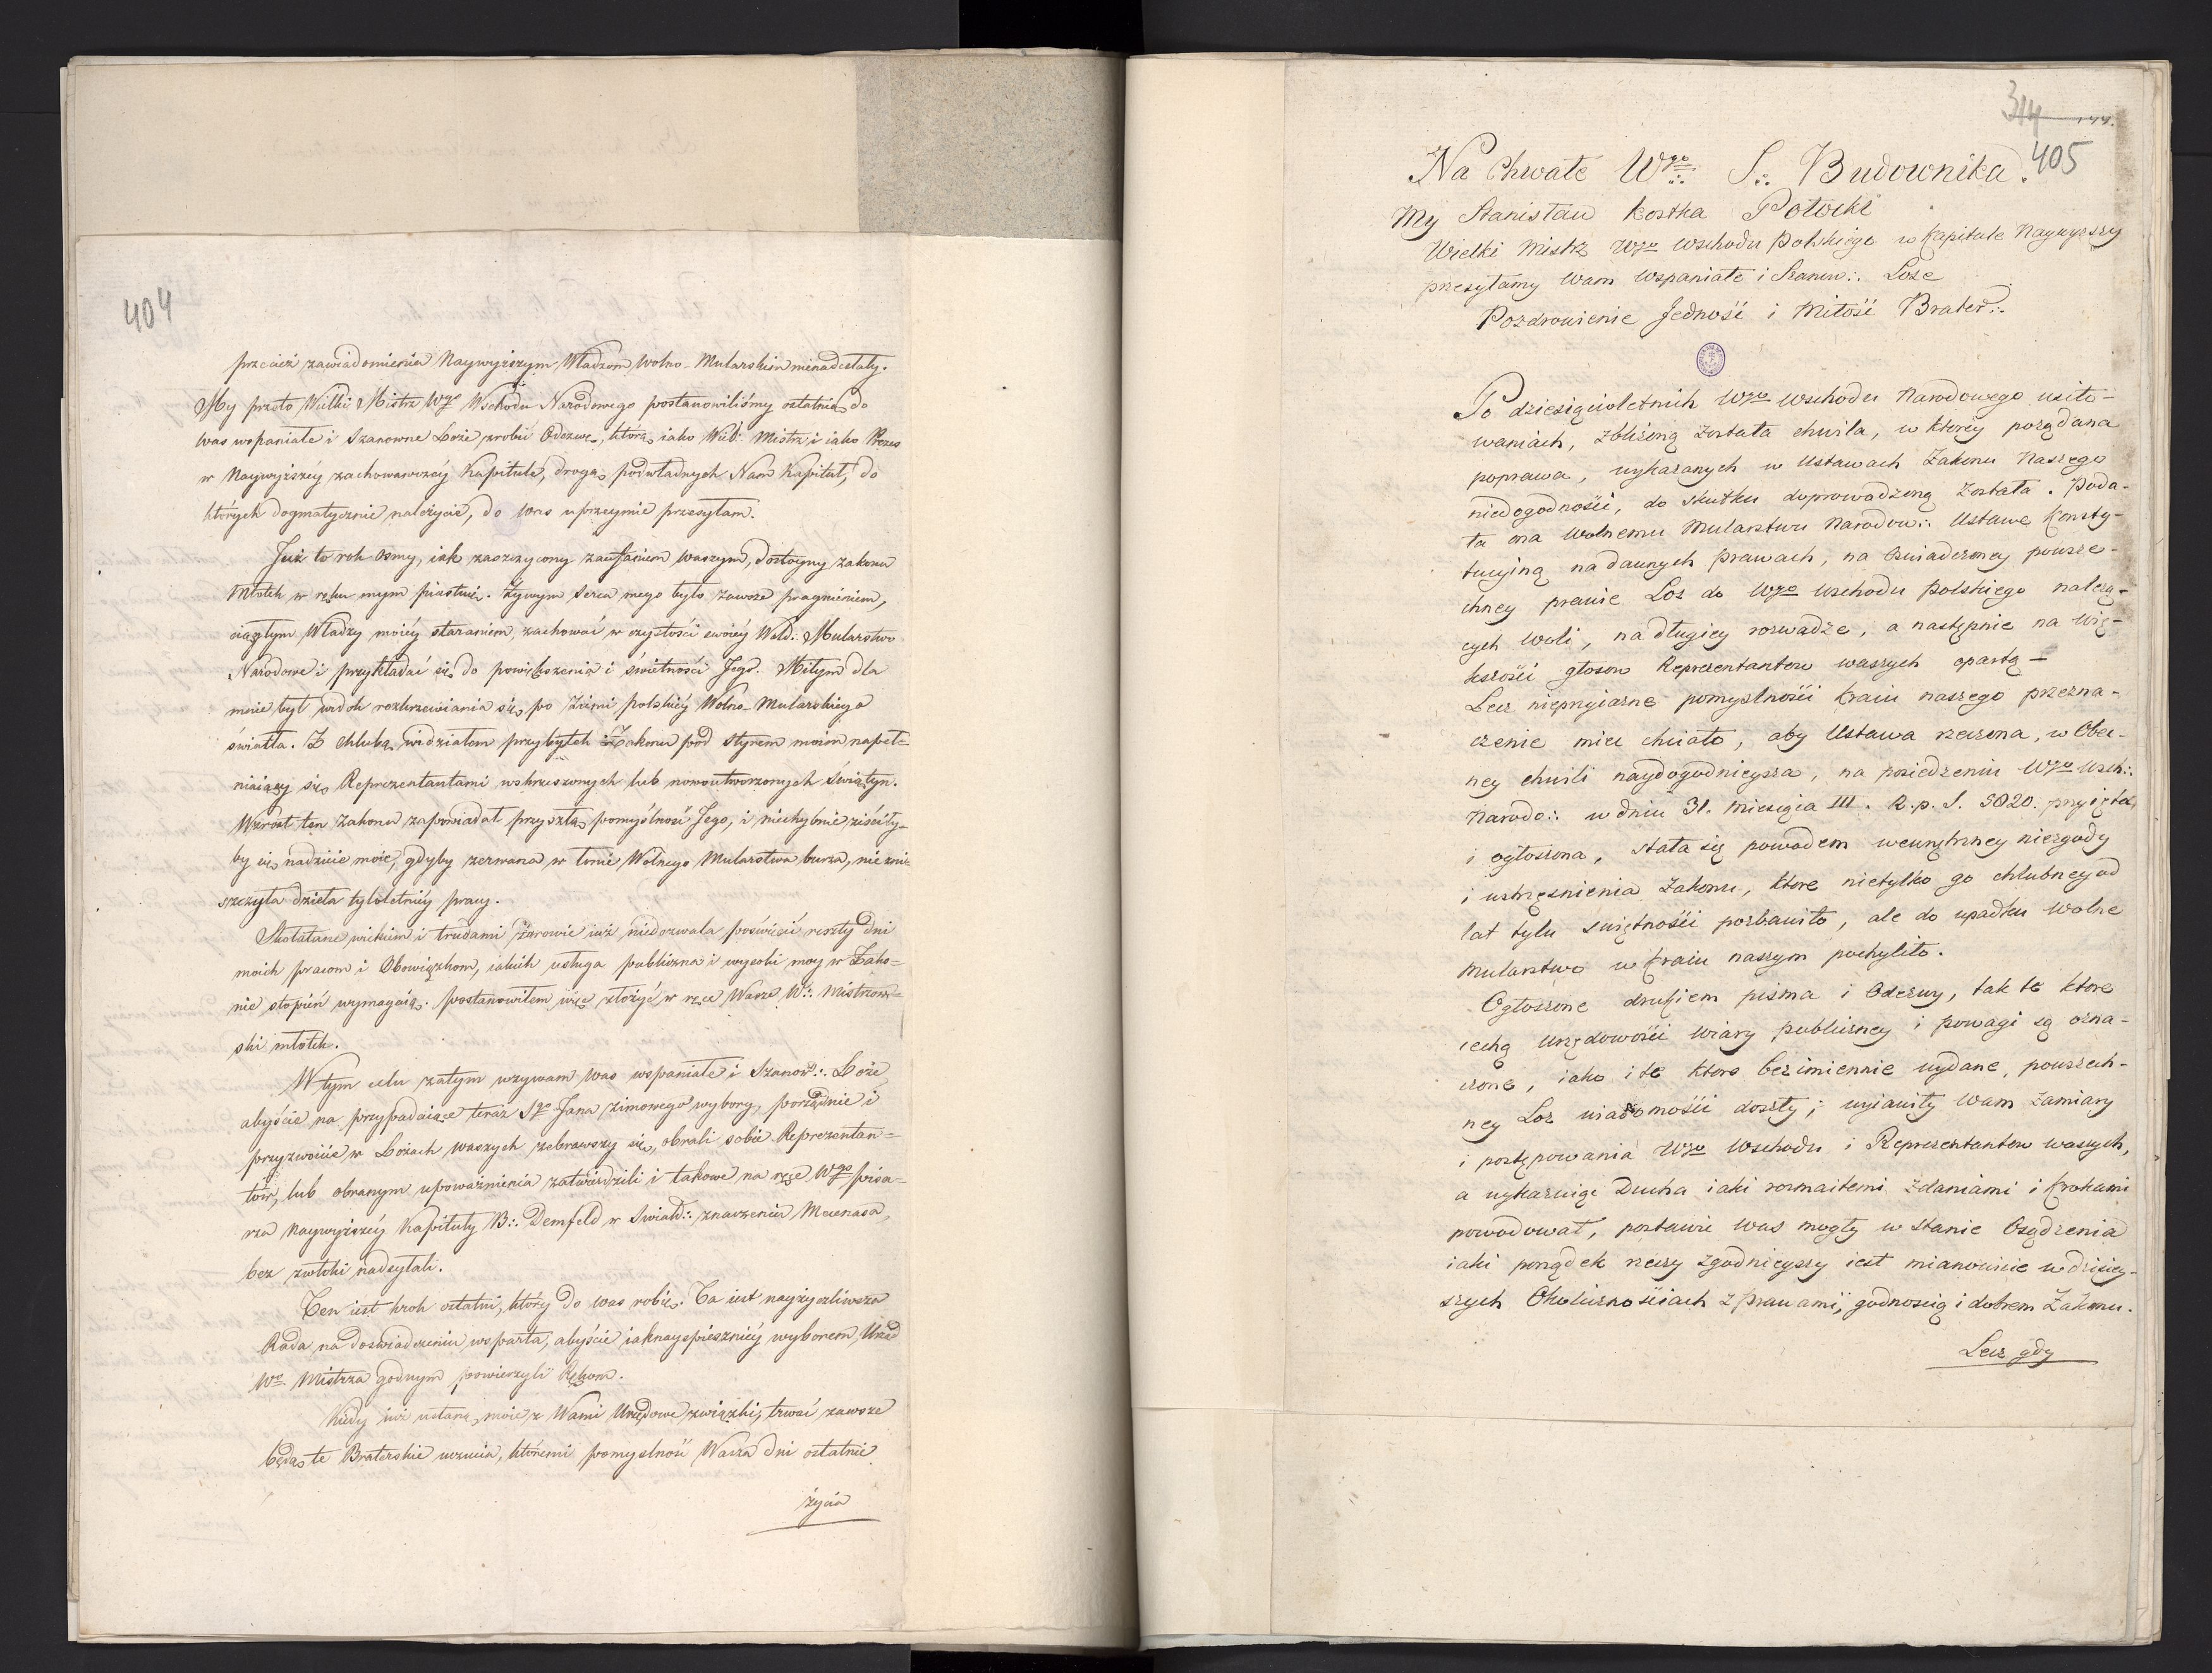 404
przecież zawiadomienia Naywyższym Władzom Wolno-Mularskim nienadesłały.
My przeto Wielki Mistrz Wgo Wschodu Narodowego postanowiliśmy ostatnią do
was wspaniałe i Szanowne Loże zrobić Odezwę, którą iako Wiel: Mistrz i iako Prezes
w Naywyższéy zachowawczéy Kapitule, drogą podwładnych Nam Kapituł, do
których dogmatycznie należycie, do Was uprzeymie przesyłam.
Już to rok osmy, iak zaszczycony zaufaniem waszym, dostoyny zakonu
Młotek w ręku mym piastuię. Żywym serca mego było zawsze pragnieniem,
ciągłym Władzy moiéy staraniem, zachować w czystości swoiéy Woln: Mularstwo
Narodowe i przykładać się do powiększenia i świetności Jego. Miłym dla
mnie był widok rozkrzewiania się po Ziemi polskiéy Wolno-Mularskiego
światła. Z chlubą widziałem przybytek Zakonu pod sterem moim napeł=
niaiący się Reprezentantami wskrzeszonych lub nowoutworzonych Świątyń.
Wzrost ten Zakonu zapowiadał przyszłą pomyślność Jego, i niechybnie ziściły=
by się nadzieie moie, gdyby zerwana w łonie Wolnego Mularstwa burza, nie zni=
szczyła dzieła tyloletniéy pracy.
Skołatane wiekiem i trudami zdrowie iuż niedozwala poświęcić reszty dni
moich pracom i Obowiązkom, iakich usługa publiczna i wysoki moy w Zako=
nie stopień wymagaią. postanowiłem więc złożyć w ręce Wasze W: Mistrzow=
ski młotek.
W tym celu zatym wzywam Was wspaniałe i Szanow: Loże,
abyście na przypadaiące teraz Sgo Jana zimowego wybory, porządnie i
przyzwoicie w Lożach waszych zebrawszy się, obrali sobie Reprezentan=
tów, lub obranym upoważnienia zatwierdzili i takowe na ręce Wgo pisa=
rza Naywyższéy Kapituły B: Demfeld w Świat: znaczeniu Mecenasa,
bez zwłoki nadesłali.
Ten iest krok ostatni, który do was robię. Ta iest nayżyczliwsza
Rada na doświadczeniu wsparta, abyście iaknayspieszniéy wyborem, Urząd
Wo Mistrza godnym powierzyli Rękom.
Kiedy iuż ustaną moie z Wami Urzędowe związki, trwać zawsze
będą te Braterskie uczucia, któremi pomyslność Wasza dni ostatnie
życia
314
405
Na Chwałe Wgo S: Budownika.
My Stanisław Kostka Potocki
Wielki Mistrz Wgo Wschodu Polskiego w Kapitule Naywyższy
przesyłamy Wam Wspaniałe i Szanow: Loże
Pozdrowienie Jedność i Miłość Brater:
Po dziesięcioletnich Wgo Wschodu Narodowego usiło-
waniach, zbliżoną została chwila, w ktorey porządana
poprawa, wykazanych w Ustawach Zakonu Naszego
niedogodności, do skutku doprowadzoną została. Poda-
ła ona Wolnemu Mularstwu Narodow: Ustawę Konsty-
tucyiną na dawnych prawach, na doswiadczoney powsze-
chney prawie Loż do Wgo Wschodu polskiego należą-
cych woli, na długiey rozwadze, a następnie na Wię-
kszości głosow Reprezentantow waszych opartą –
Lecz nieprzyiazne pomyslności Kraiu naszego przezna-
czenie mieć chciało, aby Ustawa rzeczona, w Obec-
ney chwili naydogodnieysza, na posiedzeniu Wgo Wsch:
Narodo: w dniu 31. Miesiąca III. R. p. S. 5820. przyięta
i ogłoszona, stała się powodem wewnętrzney niezgody
i wstrząśnienia Zakonu, ktore nietylko go chlubney od
lat tylu świetności pozbawiło, ale do upadku Wolne
Mularstwo w Kraiu naszym pochyliło.
Ogłoszone drukiem pisma i Odezwy, tak te ktore
cechą urzędowości wiary publiczney i powagi są ozna-
czone, iako i te ktore bezimiennie wydane, powszech-
ney Loż wiadomości doszły; wyiawiły Wam zamiary
i postępowania Wgo Wschodu i Reprezentantow waszych,
a wykazuiąc Ducha iaki rozmaitemi zdaniami i Krokami
powodował, postawić Was mogły w stanie Osądzenia
iaki porządek rzeczy zgodnieyszy iest mianowicie w dzisiey-
szych Okolicznościach z prawami, godnością i dobrem Zakonu.
Lecz gdy